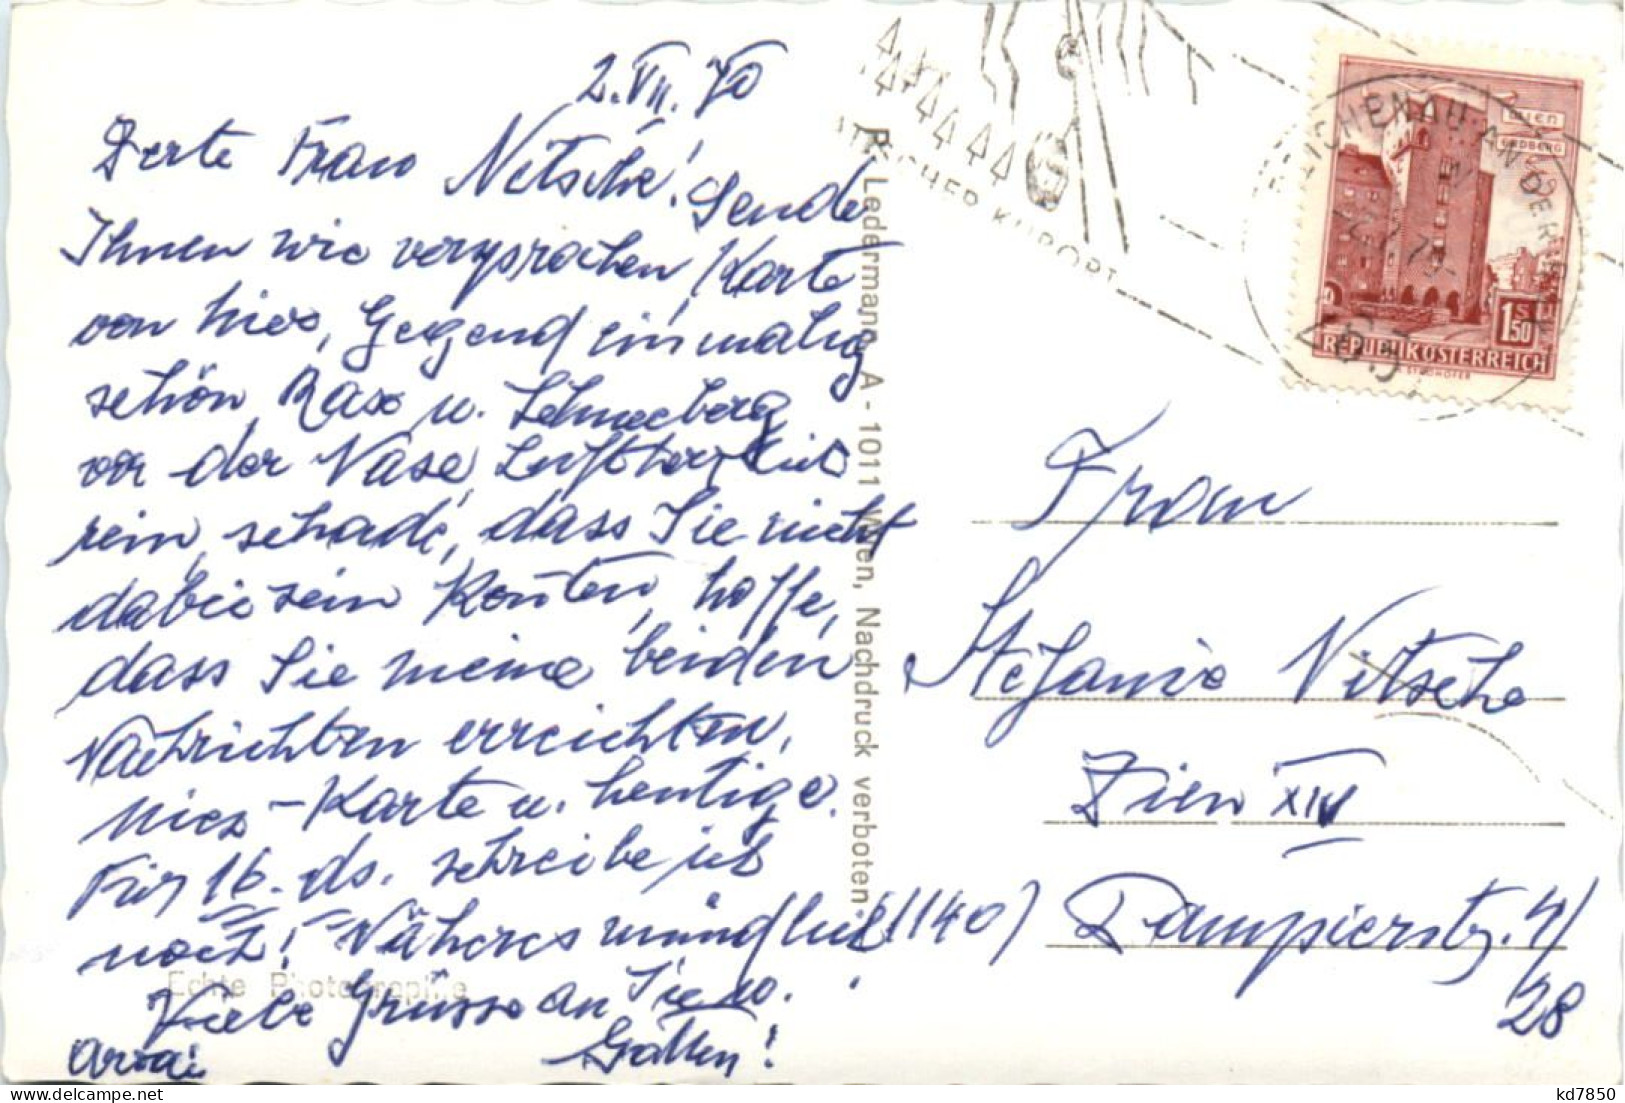 2. VII. 70
Werte Frau Nitsche! Sende
Ihnen wie versprochen, Karte
von hier, Gegend einmalig
schön, Rax u. Schneeberg
vor der Nase, Luft herrlich
rein, schade, dass Sie nicht
dabei sein konnten, hoffe,
dass Sie meine beiden
Nachrichten erreichten,
Karte u. heutige.
Für 16. ds. schreibe ich
noch! Näheres mündlich!
Viele Grüsse an Sie u.
Gatten!
Echte Photographie
R. Ledermann, A - 1011 Wien, Nachdruck verboten
KURORT
REICHENAU AN DER RAX
265
WIEN
ERDBERG
1.50
REPUBLIK ÖSTERREICH
Frau
Stefanie Nitsche
Wien XIV
(1140) Dampierstr. 4/
28
kd7850